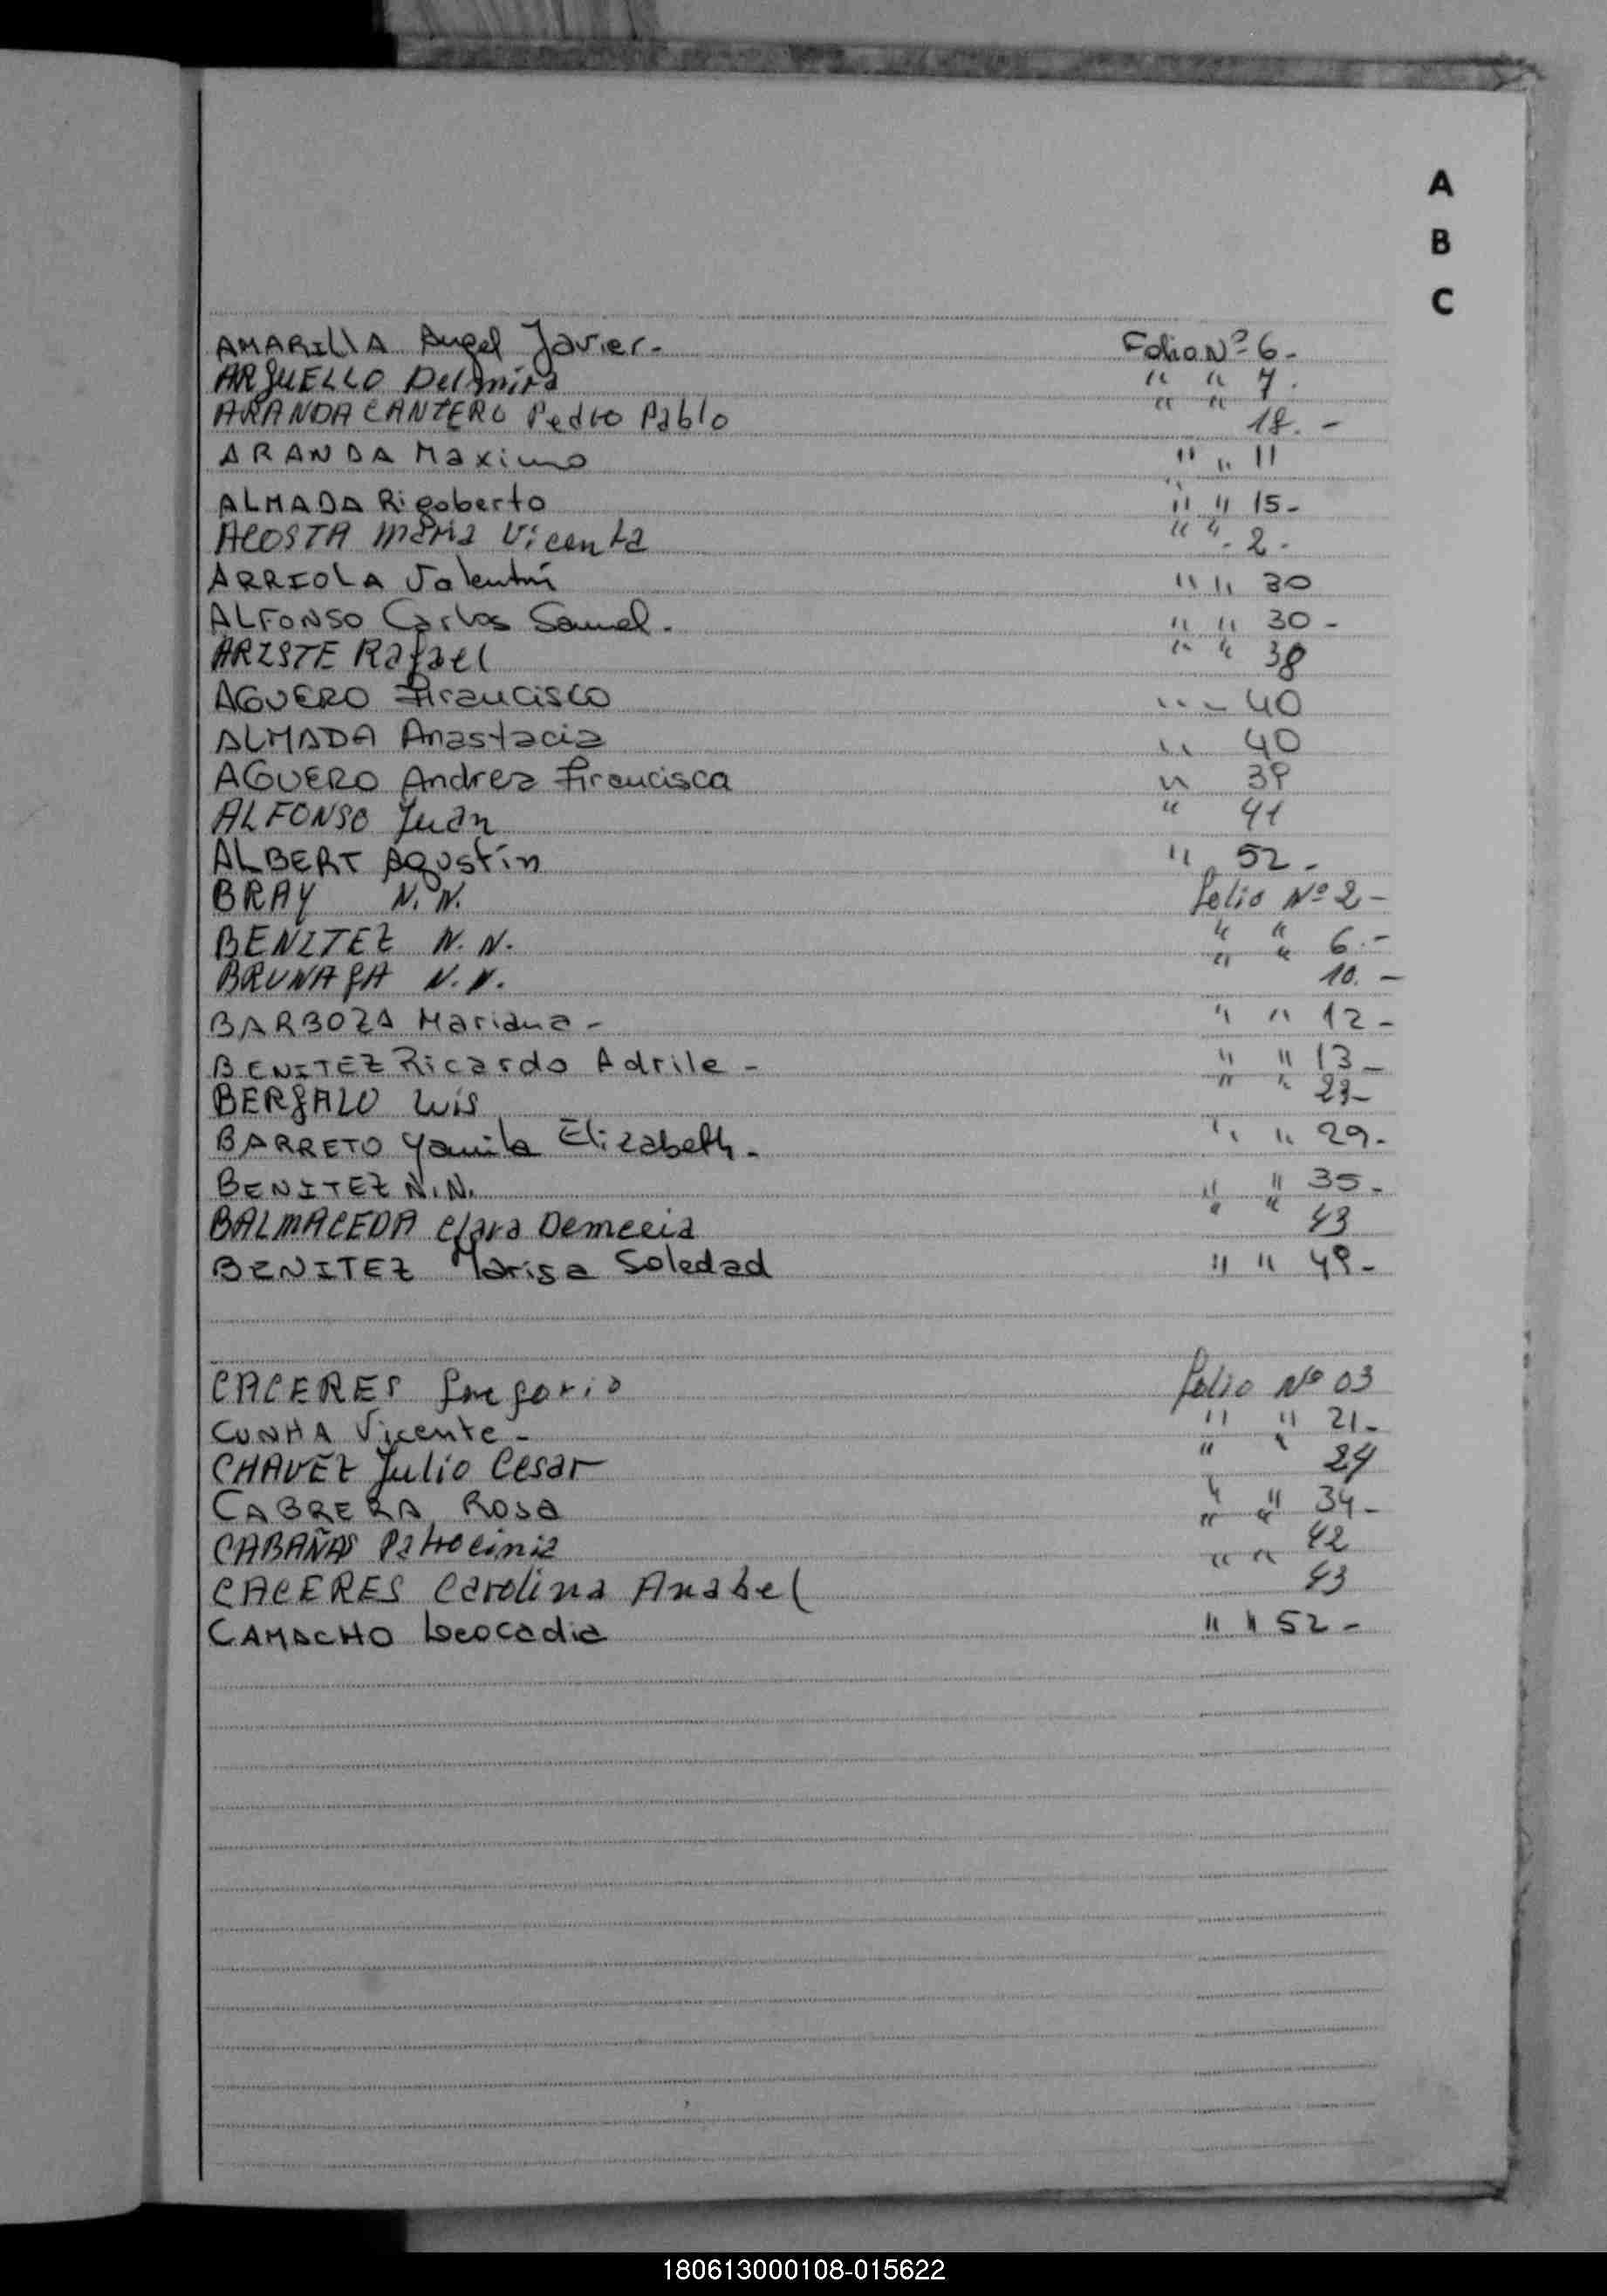 A
B
C
AMARILLA Angel Javier.- Folio Nº 6.-
ARGUELLO Delmira " " 7.
ARANDA CANTERO Pedro Pablo " " 18.-
ARANDA Maximo " " 11
ALMADA Rigoberto " " 15-
ACOSTA Maria Vicenta " " 2-
ARRIOLA Valentín " " 30
ALFONSO Carlos Samuel. " " 30-
ARISTE Rafael " " 38
AGUERO Francisco " - 40
ALMADA Anastacia " 40
AGUERO Andrea Francisca " 39
ALFONSO Juan " 41
ALBERT Agustín " 52-
BRAY N.N. folio Nº 2-
BENITEZ N.N. " " 6.-
BRUNAGA N.N. " " 10.-
BARBOZA Mariana - " " 12-
BENITEZ Ricardo Adrile - " " 13-
BERGALO Luis " " 23-
BARRETO Yamila Elizabeth. " " 29-
BENITEZ N.N. " " 35-
BALMACEDA Clara Demecia " " 43
BENITEZ Marisa Soledad " " 49-
CACERES Gregorio folio Nº 03
CUNHA Vicente - " " 21-
CHAVEZ Julio Cesar " " 24
CABRERA Rosa " " 34-
CABAÑAS Patrocinia " " 42
CACERES Carolina Anabel " " 43
CAMACHO Leocadia " " 52-
180613000108-015622